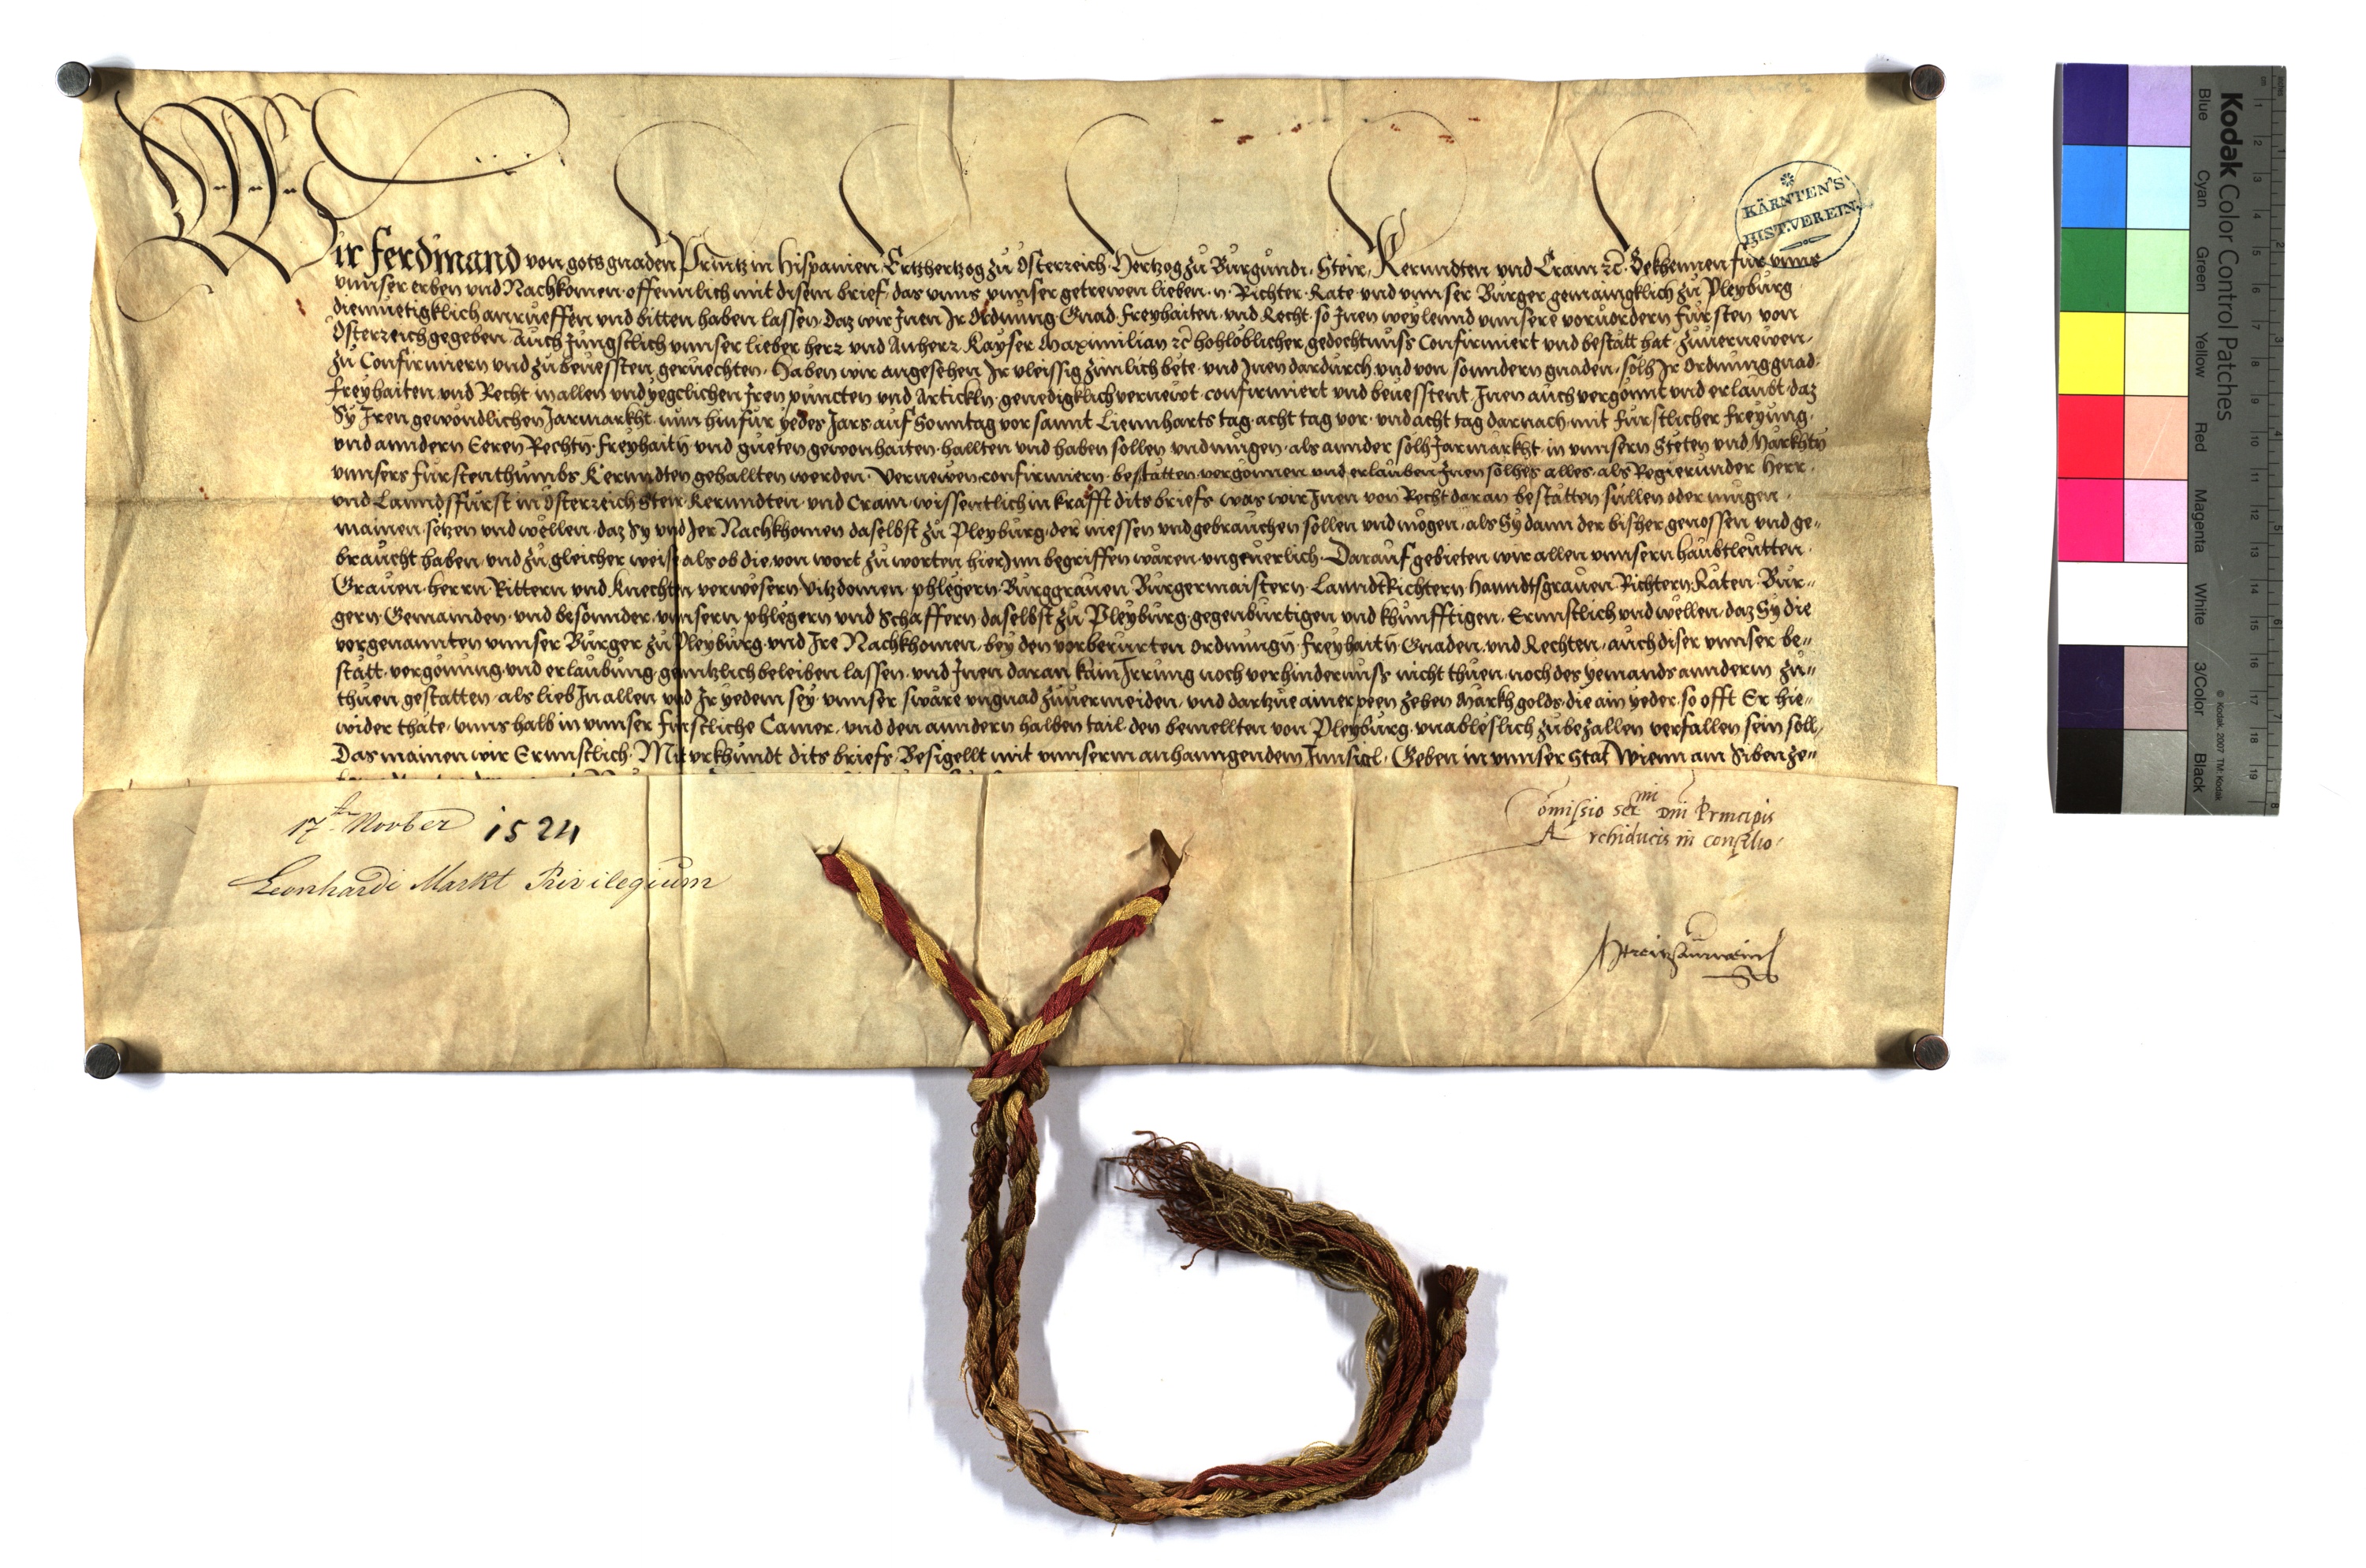 Wir Ferdinand von gots gnaden Printz in Hispanien Ertzhertzog zu Osterreich Hertzog zu Burgundi, Steir, Kernndten und Crain ⁊c̃. Bekhennen für vnns
vnnser erben und Nachkomen offennlich mit disem brief, das vnns vnnser getrewen lieben .n. Richter Rate und vnnser Burger gemaingklich zu Pleyburg
diemuetigklich anrueffen und bitten haben lassen, daz wir Inen Ir Ordnung Gnad Freyhaiten und Recht so Inen weylennd vnnsere voruordern Fürsten von
Osterreich gegeben Auch Jungstlich vnnser lieber herr und Anherr Kayser Maximilian ⁊c̃ hohloblicher gedechtnuss Confirmiert und bestätt hat zuuernewen,
zu Confirmiern und zu beuessten geruechten. Haben wir angesehen Ir vleissig zimlich bete und Inen dardurch und von sonndern gnaden, solh Ir Ordnung gnad
Freyhaiten und Recht in allen und yegclichen Iren puncten und Artickln genedigklich vernewt confirmiert und beuesstent Inen auch vergönnt und erlaubt daz
Sy Iren gewondlichen Jarmarkht nun hinfür yedes Jars auf Sonntag vor sannt Liennharts tag acht tag vor und acht tag darnach mit Furstlicher Freyung
und anndern Eeren Rechtn̄ Freyhaitn̄ und gueten gewonhaiten hallten und haben sollen und mugen als annder solh Jarmarkht in vnnsern Steten und Markhtn̄
vnnsers Fürstenthumbs Kernndten gehallten werden Vernewen confirmiern bestätten vergonnen und erlauben Inen solhes alles als Regierunder Herr
und Lanndsfürst in Osterreich Steir Kernndten und Crain wissentlich in krafft dits briefs was wir Inen von Recht daran bestätten sullen oder mugen
mainen setzen und wellen, daz Sy und Jer Nachkhomen daselbst zu Pleyburg der niessen und gebrauchen sollen und mögen als Sy dann der bisher genossen und ge„
braucht haben und zu gleicher weise als ob die von wort zu worten hierinn begriffen wären ungeuerlich Darauf gebieten wir allen vnnsern haubtleutten
Grauen herrn Rittern und Knechten verwesern Vitzdomen phlegern Burggrauen Burgermaistern LanndtRichtern hanndtsgrauen Richtern Räten Bur„
gern Gemainden und besonnder vnnsern phlegern und Schaffern daselbst zu Pleyburg gegenburtigen und khunfftigen Ernnstlich und wellen daz Sy die
vorgenannten vnnser Burger zu Pleyburg und Ire Nachkhomen bey den vorberurten ordnungn̄ Freyhaitn̄ Gnaden und Rechten auch diser vnnser be„
stätt vergönung und erlaubung genntzlich beleiben lassen und Inen daran kain Irrung noch verhindernuss nicht thuen noch des yemands annderm zu„
thuen gestatten als lieb In allen und Ir yedem sey vnnser swäre ungnad zuuermeiden, und dartzue ainer peen zehen Markh golds, die ain yeder so offt Er hie„
wider thäte vnns halb in vnnser Furstliche Camer, und den anndern halben tail den bemellten von Pleyburg unabloslich zubezallen verfallen sein soll,
Das mainen wir Ernnstlich Mit vrkhundt dits briefs Besigellt mit vnnserm anhanngendem Innsigl. Geben in vnnser Stat Wienn am Sibenze„
KÄRNTEN'S
HIST. VEREIN.
17ten Novber 1524
Leonhardi Markt Privilegium
Comissio serᵐⁱ dni Principis
Archiducis in consilio
Kodak Color Control Patches
Blue Cyan Green Yellow Red Magenta White 3/Color Black
© Kodak, 2007 TM: Kodak